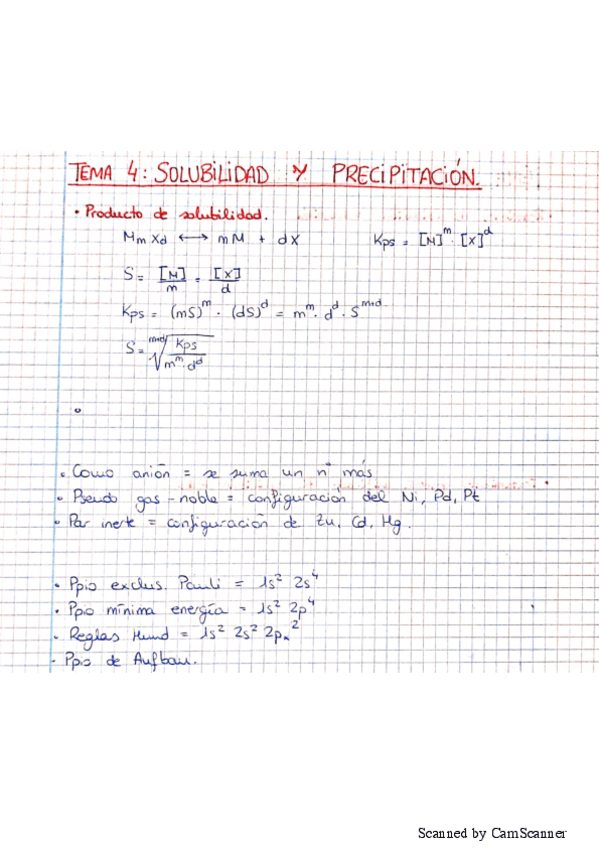 TEMA 4: SOLUBILIDAD Y PRECIPITACIÓN.
• Producto de solubilidad.
MmXd ⟷ mM + dX    Kps = [M]^m · [X]^d
S = [M]/m = [X]/d
Kps = (mS)^m · (dS)^d = m^m · d^d · S^(m+d)
S = ^(m+d)√(Kps/(m^m · d^d))
• Como anión = se suma un nº más
• Pseudo gas-noble = configuración del Ni, Pd, Pt
• Par inerte = configuración de Zu, Cd, Hg.
• Ppio exclus. Pauli = 1s² 2s⁴
• Ppio mínima energía = 1s² 2p⁴
• Reglas Hund = 1s² 2s² 2pₓ²
• Ppio de Aufbau.
Scanned by CamScanner